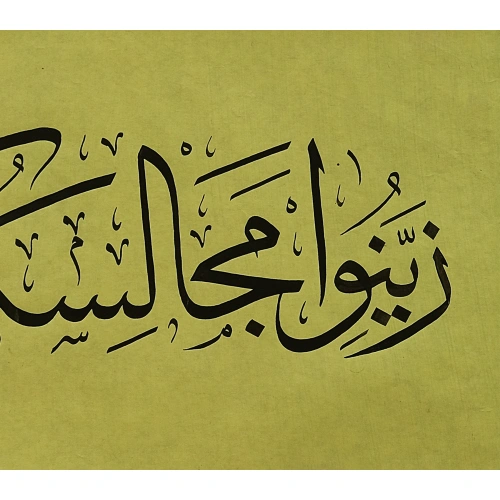 زَيِّنُوا مَجَالِسَكُ